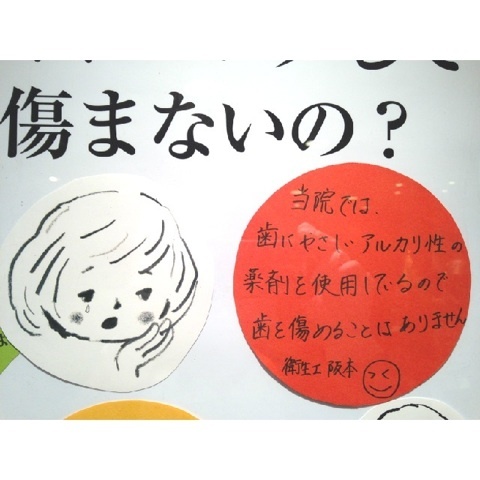 傷まないの？
当院では、
歯にやさしいアルカリ性の
薬剤を使用しているので
歯を傷めることはありません
衛生士 阪本